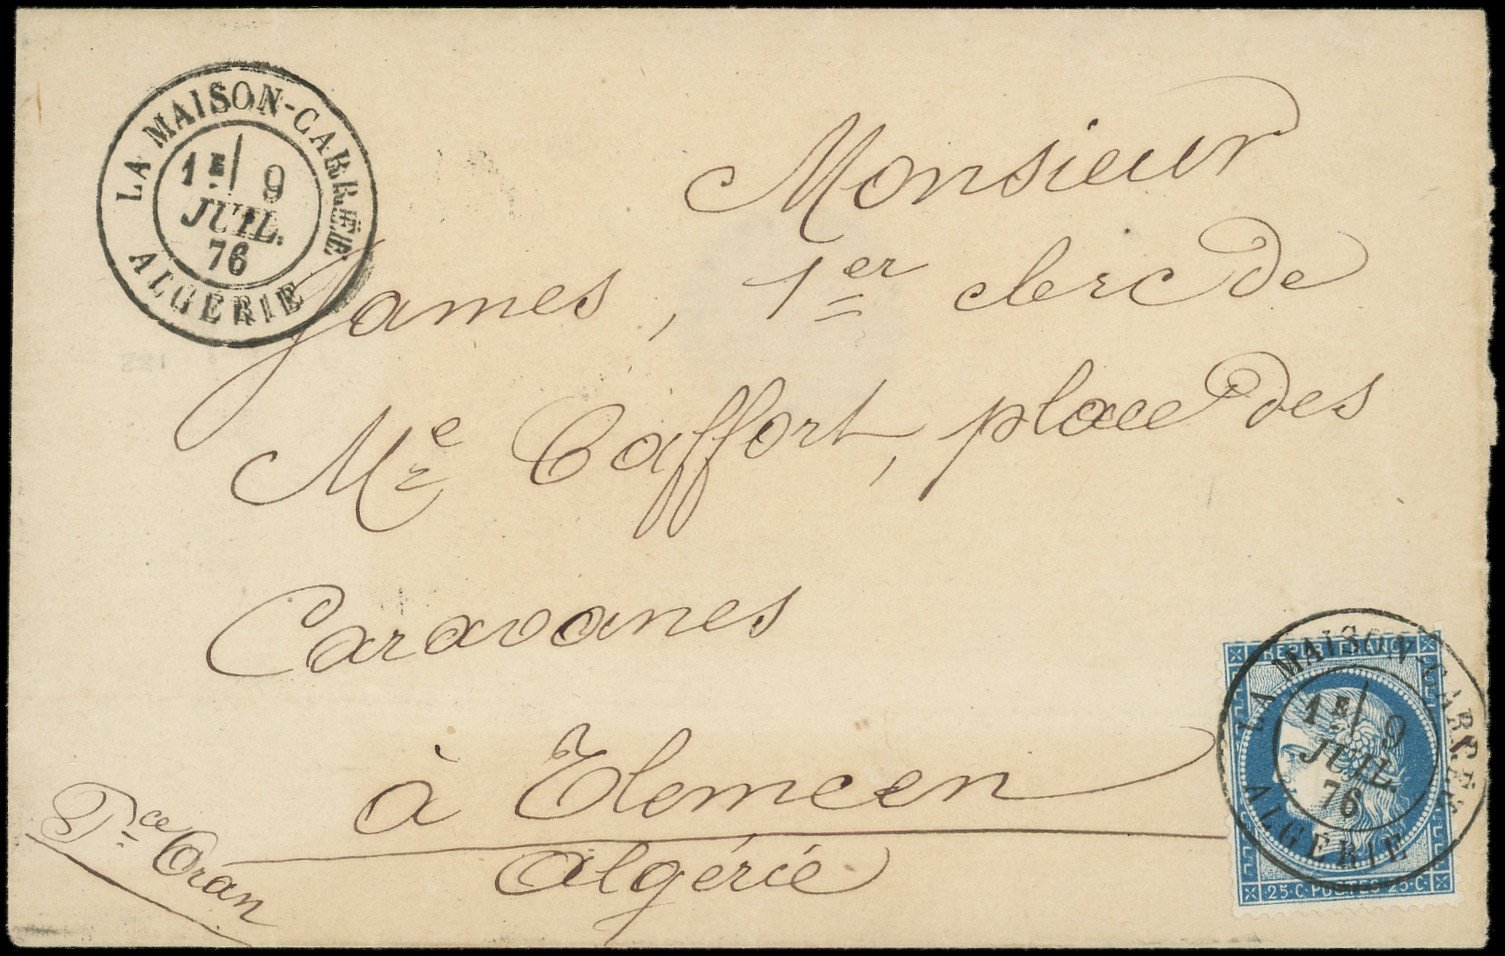 LA MAISON-CARRÉE
1E/ 9
JUIL.
76
ALGÉRIE
Monsieur
James, 1er clerc de
Me Caffort, place des
Caravanes
à Tlemcen
Algérie
Pce Oran
REPUB FRANC
LA MAISON-CARRÉE
1E/ 9
JUIL.
76
ALGÉRIE
25·C·POSTES·25·C·
221